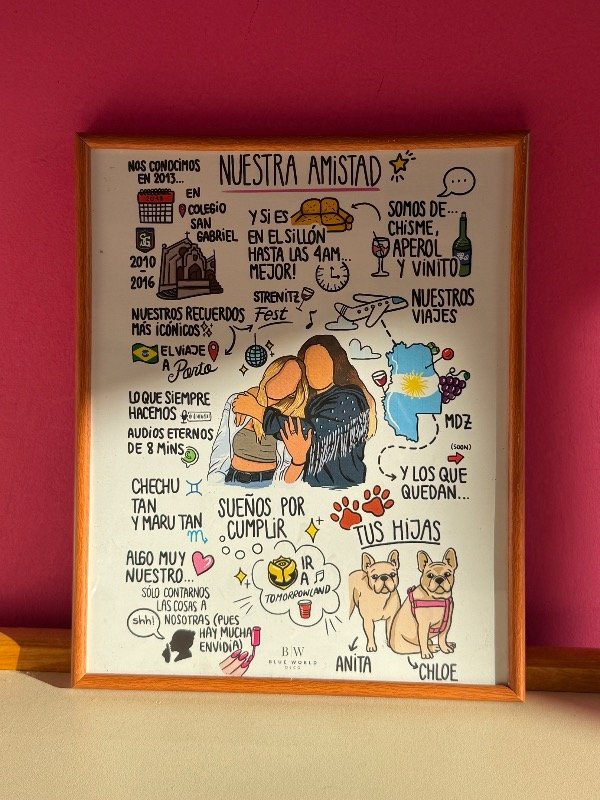 NUESTRA AMISTAD
NOS CONOCIMOS
EN 2013...
EN
COLEGIO
SAN
GABRIEL
SG
2010
-
2016
Y SI ES
EN EL SILLÓN
HASTA LAS 4AM...
MEJOR!
SOMOS DE...
CHISME,
APEROL
Y VINITO
NUESTROS RECUERDOS
MÁS ICÓNICOS
STRENITZ
Fest
EL VIAJE
A Porto
NUESTROS
VIAJES
MDZ
(SOON)
Y LOS QUE
QUEDAN...
LO QUE SIEMPRE
HACEMOS
AUDIOS ETERNOS
DE 8 MINS
CHECHU
TAN
Y MARU TAN
SUEÑOS POR
CUMPLIR
IR
A
TOMORROWLAND
TUS HIJAS
ANITA
CHLOE
ALGO MUY
NUESTRO...
SÓLO CONTARNOS
LAS COSAS A
NOSOTRAS (PUES
HAY MUCHA
ENVIDIA)
shh!
B|W
BLUE WORLD
DECO